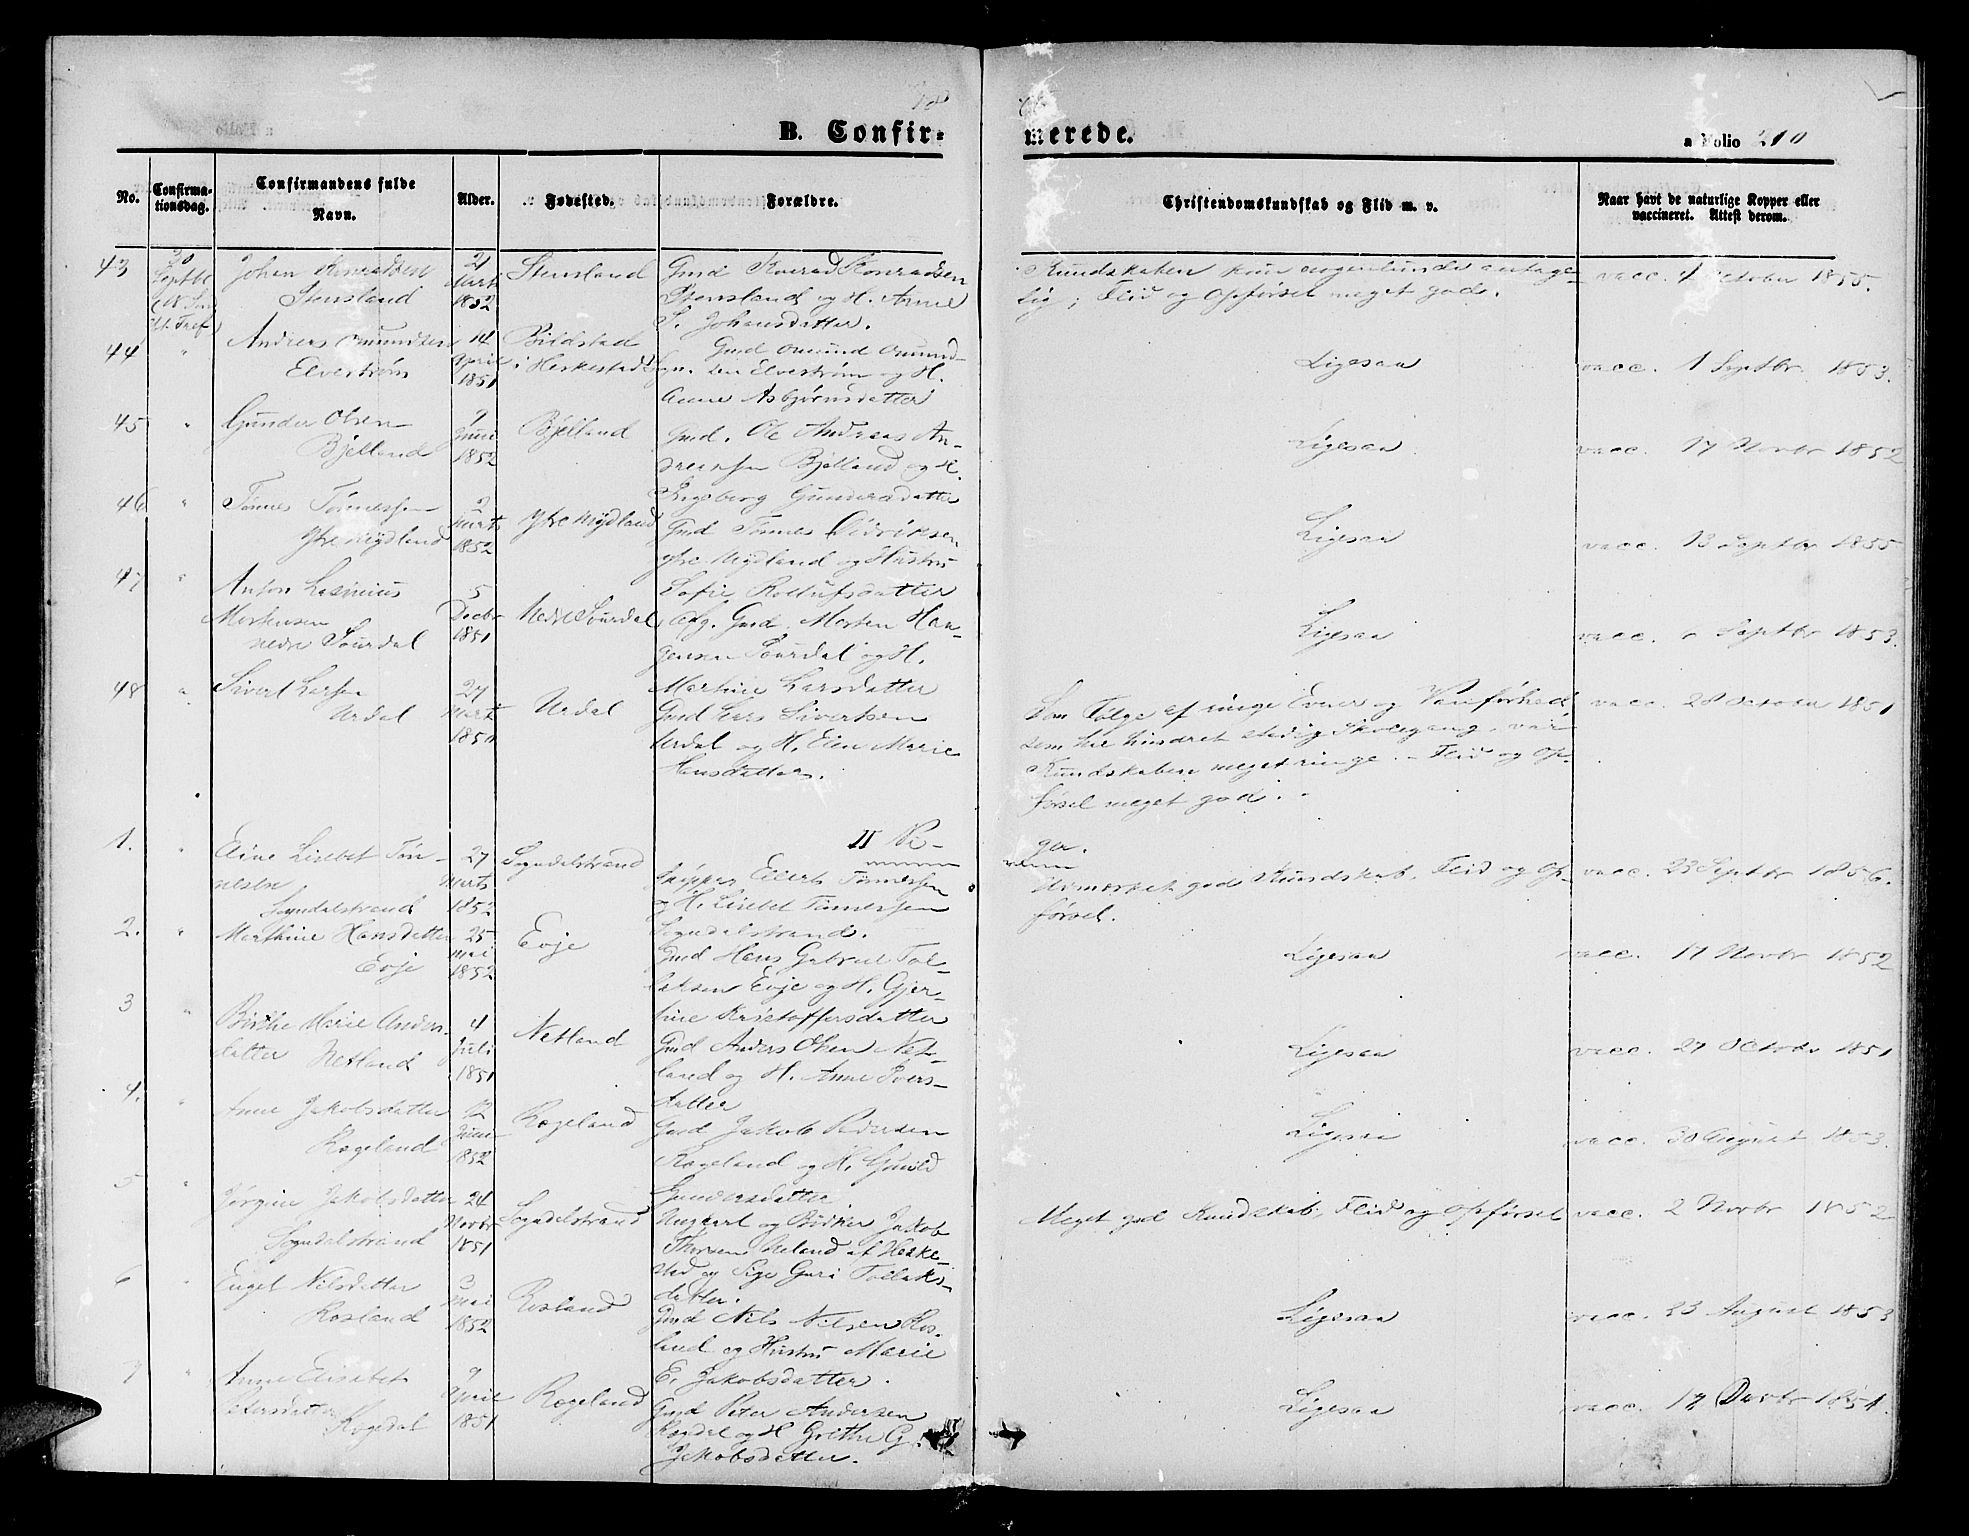 B. Confir-
merede.
a Folio 210
No.
Confirma-
tionsdag.
Confirmandens fulde
Navn.
Alder.
Fødested.
Forældre.
Christendomskundskab og Flid m. v.
Naar havt de naturlige Kopper eller
vaccineret. Attest derom.
43
Septbr
Johan Konradsen
Stensland
Marts
1852
Stensland
Gmd Konrad Konradsen
Stensland og H. Anne
S. Johansdatter.
Kundskaben kun nogenlunde antage-
lig; Flid og Opførsel meget god.
vacc. 4 October 1855.
44
"
Andreas Omundsen
Elvestrøm
14
April
1851
Bildstad
i Heskestad
Gmd Omund Omund-
sen Elvestrøm og H.
Anne Asbjørnsdatter
Ligesaa
vacc. 1 Septbr. 1853.
45
"
Gunder Olsen
Bjelland
9
Juni
1852
Bjelland
Gmd. Ole Andreas An-
dreassen Bjelland og H.
Ingeborg Gundersdatter
Ligesaa
vacc. 17 Novbr 1852
46
"
Tønnes Tønnessen
Ytre Mydland
2
Marts
1852
Ytre Mydland
Gmd Tønnes Didriksen
ytre Mydland og Hustru
Sofie Rollufsdatter
Ligesaa
vacc. 13 Septbr 1855
47
"
Anton Lasenius
Mortensen
nedre Sourdal
5
Decbr
1851
Nedre Sourdal
Gmd. Morten Han-
gensen Sourdal og H.
Martine Larsdatter
Ligesaa
vacc. 6 Septbr 1853.
48
"
Sivert Larsen
Urdal
27
Marts
1851
Urdal
Gmd Lars Sivertsen
Urdal og H. Elen Marie
Hansdatter.
Som Følge af ringe Evner og Vanførhed
som har hindret stadig Skolegang, var
Kundskaben meget ringe. - Flid og Op-
førsel meget god.
vacc. 28 October 1851
II Pi-
ger.
1.
"
Eline Lisebet Tøn-
nesen
Sogndalstrand
27
Marts
1852
Sogndalstrand
Skipper Eilert Tønnessen
og H. Lisebet Tønnessen
Sogndalstrand.
Udmærket god Kundskab, Flid og Op-
førsel.
vacc. 23 Septbr 1856.
2.
"
Marthine Hansdatter
Evje
25
Mai
1852
Evje
Gmd Hans Gabriel Tol-
laksen Evje og H. Gjer-
tine Kristoffersdatter
Ligesaa
vacc. 17 Novbr 1852
3
"
Birthe Marie Anders-
datter Netland
4
Juli
1851
Netland
Gmd Anders Olsen Net-
land og H. Anne Ivers-
datter
Ligesaa
vacc. 27 October 1851
4.
"
Anne Jakobsdatter
Rageland
12
Juni
1852
Rageland
Gmd Jakob Pedersen
Rageland og H. Gunild
Gundersdatter
Ligesaa
vacc. 30 August 1853.
5
"
Jørgine Jakobsdatter
Sogndalstrand
24
Novbr
1851
Sogndalstrand
Ungkarl og Bødker Jakob
Thorsen Neland af Heske-
stad og Pige Guri Tollaks-
datter.
Meget god Kundskab, Flid og Opførsel
vacc. 2 Novbr 1852
6
"
Enget Nilsdatter
Rosland
3
Mai
1852
Rosland
Gmd Nils Nilsen Ros-
land og Hustru Marie
E. Jakobsdatter.
Ligesaa
vacc. 23 August 1853
7
"
Anne Elisabet
Petersdatter
Rogedal
9
April
1851
Rageland
Gmd Peter Andersen
Rogdal og H Grethe G.
Jakobsdatter.
Ligesaa
vacc. 1851.